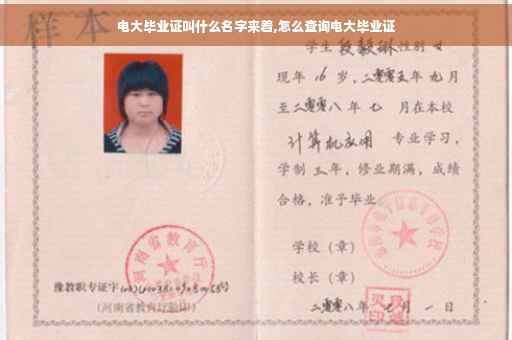 电大毕业证叫什么名字来着,怎么查询电大毕业证
样本
学生 段毅琳 性别 女
现年 16 岁,二零零五年九月
至二零零八年七 月在本校
计算机应用 专业学习,
学制 三 年,修业期满,成绩
合格,准予毕业
学校(章)
校长(章)
河南省教育厅
豫教职专证字
(河南省教育厅验印)
二零零八年七月一日